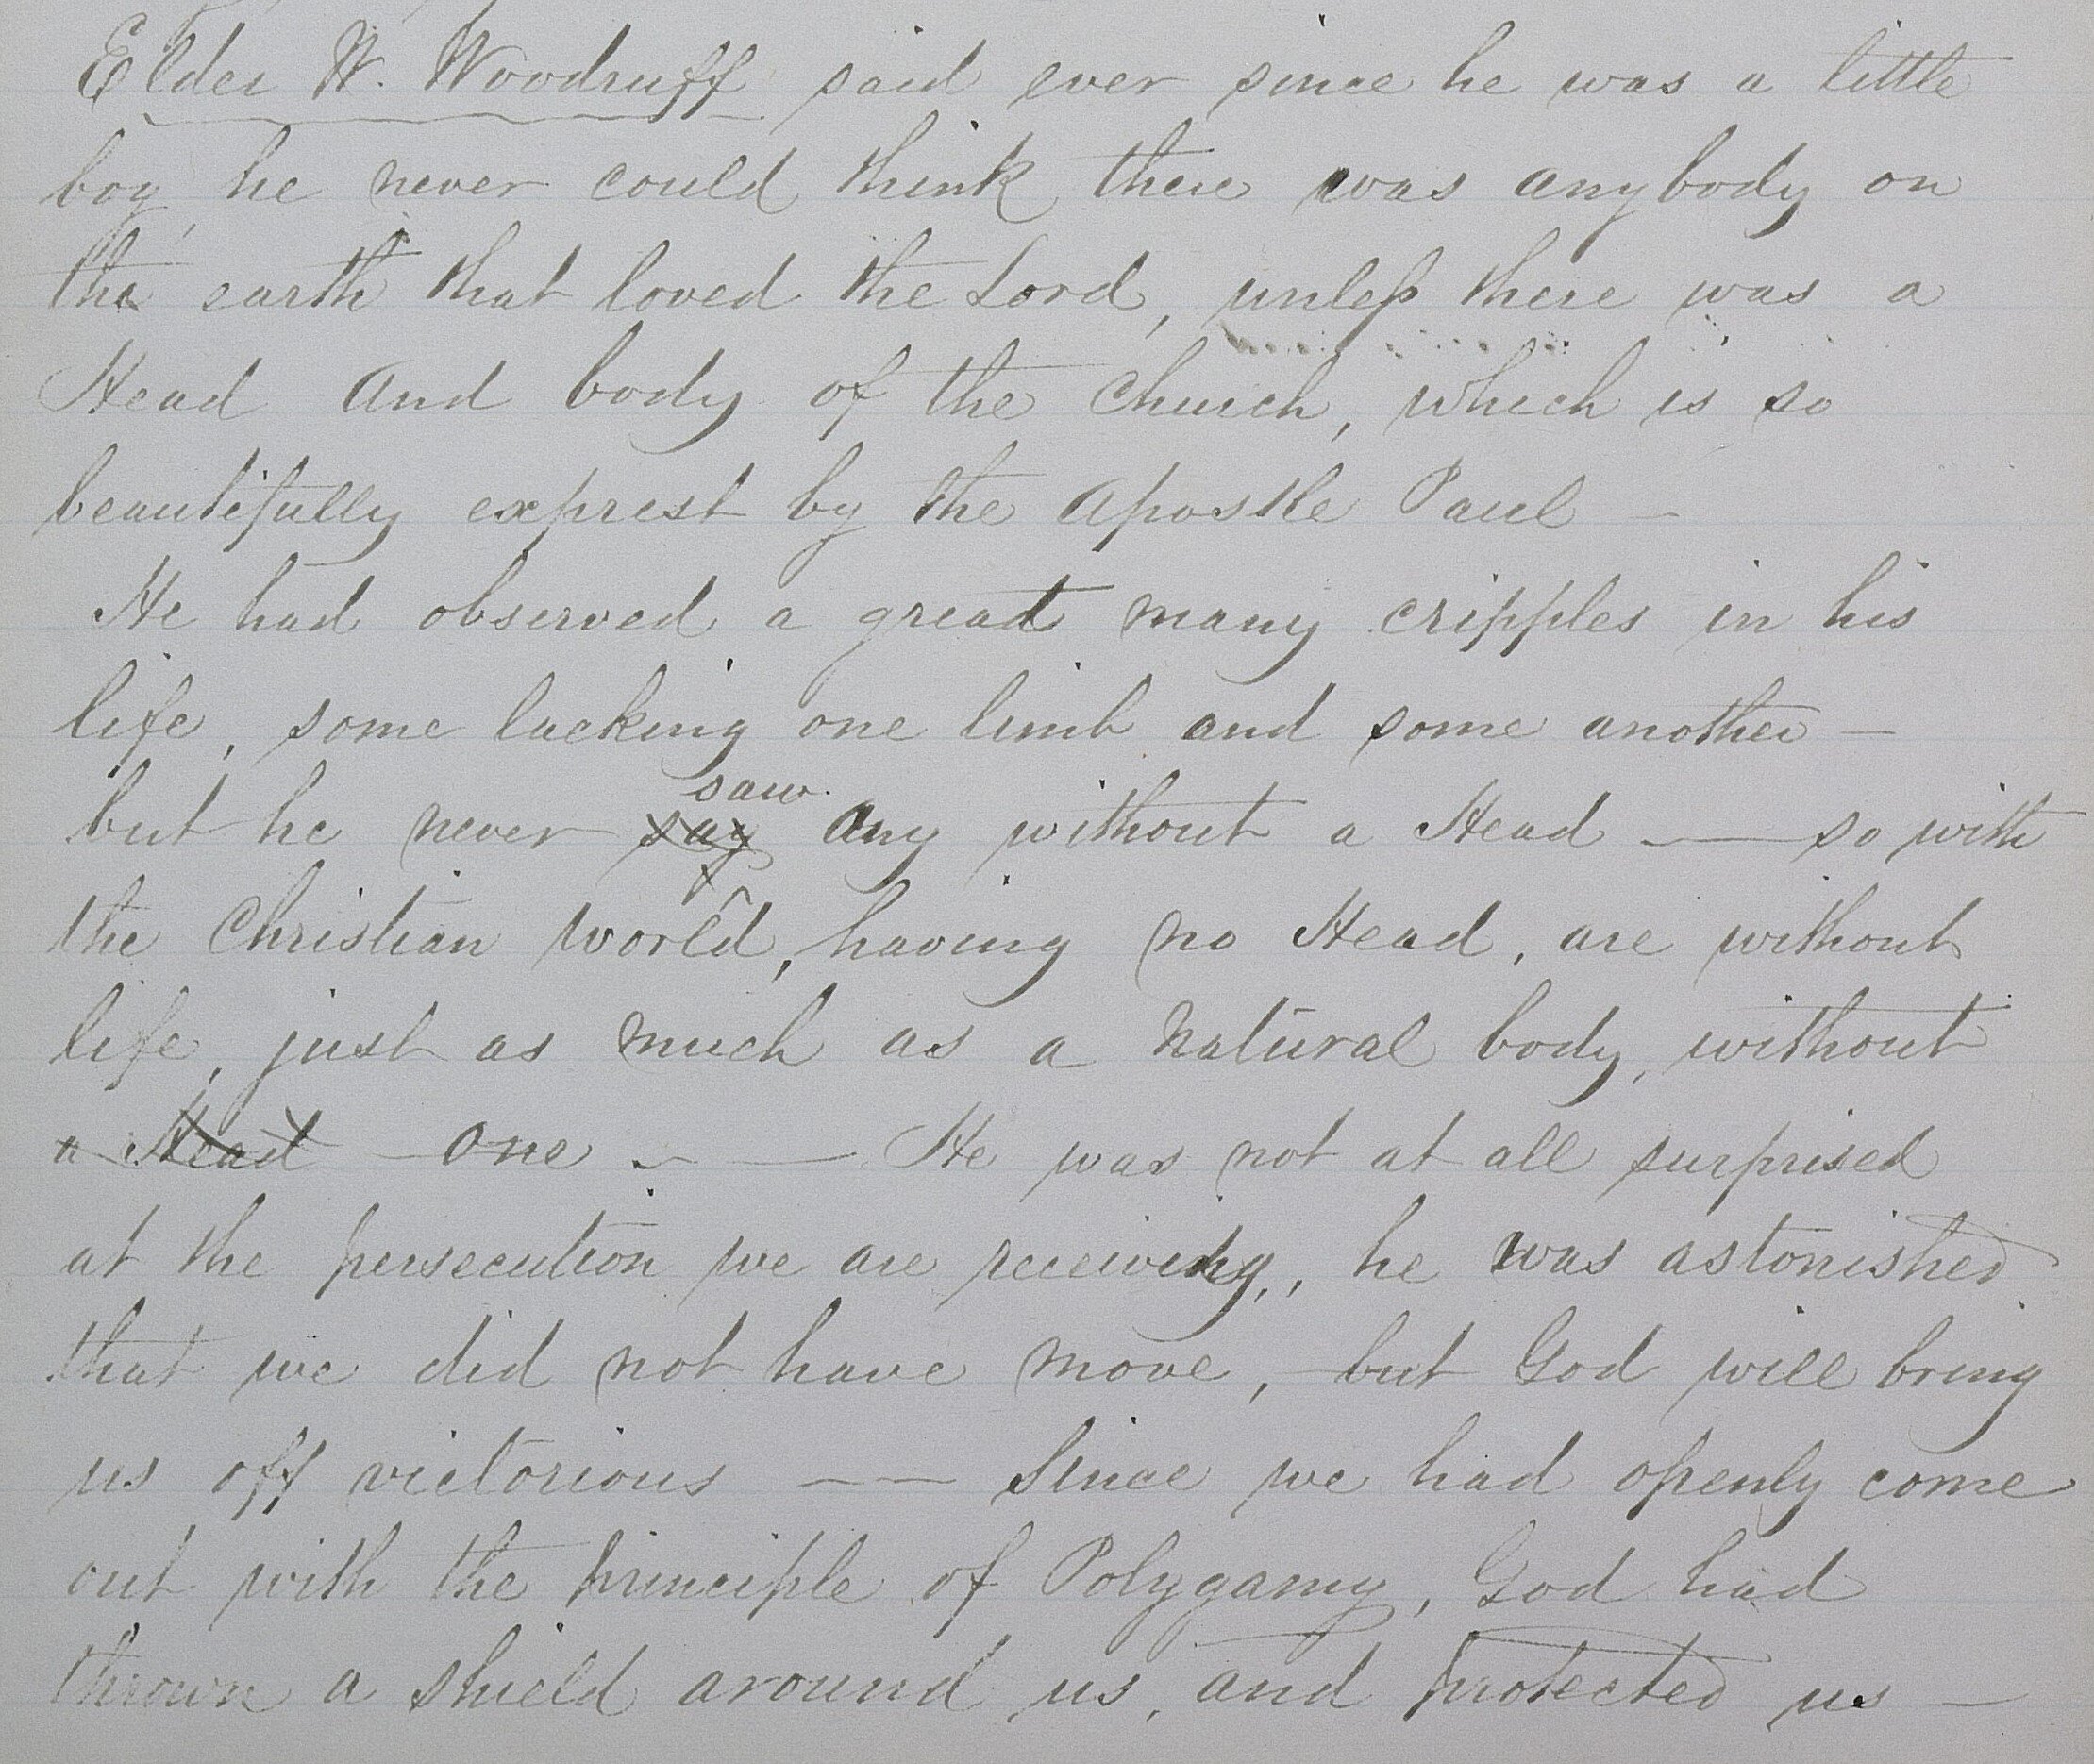 Elder W. Woodruff said ever since he was a little
boy, he never could think there was anybody on
the earth that loved the Lord, unless there was a
Head and body of the Church, which is so
beautifully exprest by the Apostle Paul —
He had observed a great many cripples in his
life, some lacking one limb and some another —
but he never say saw any without a Head — so with
the Christian world, having no Head, are without
life, just as much as a natural body, without
a Head one — He was not at all surprised
at the persecution we are receiving, he was astonished
that we did not have move, but God will bring
us off victorious — — Since we had openly come
out with the principle of Polygamy, God had
thrown a shield around us, and protected us —